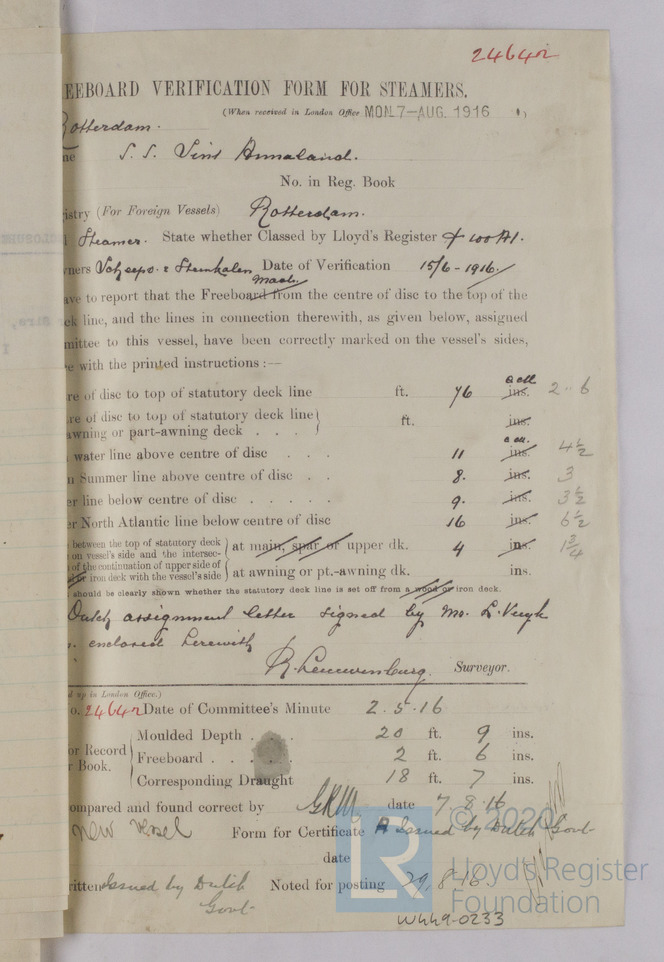 24642
EEBOARD VERIFICATION FORM FOR STEAMERS.
(When received in London Office MON.7-AUG.1916 )
Rotterdam.
me S.S. Sint Annaland.
No. in Reg. Book
istry (For Foreign Vessels) Rotterdam.
Steamer. State whether Classed by Lloyd's Register + 100 A1.
wners Date of Verification 15/6-1916.
ave to report that the Freeboard from the centre of disc to the top of the
ck line, and the lines in connection therewith, as given below, assigned
mmittee to this vessel, have been correctly marked on the vessel's sides,
e with the printed instructions :—
re of disc to top of statutory deck line ft. 76 ins. 2..6
re of disc to top of statutory deck line
awning or part-awning deck . . . ft. ins.
water line above centre of disc . . . 11 ins. 4½
n Summer line above centre of disc . . 8. ins. 3
er line below centre of disc . . . . . 9. ins. 3½
er North Atlantic line below centre of disc 16 ins. 6½
between the top of statutory deck
on vessel's side and the intersec-
of the continuation of upper side of
or iron deck with the vessel's side
at main, spar or upper dk. 4 ins. 1¾
at awning or pt.-awning dk. ins.
should be clearly shown whether the statutory deck line is set off from a wood or iron deck.
Dutch assignment letter signed by Mr.
enclosed herewith
R. Leeuwenburg. Surveyor.
d up in London Office.)
o. 24642 Date of Committee's Minute 2.5.16
or Record
r Book.
Moulded Depth . . . 20 ft. 9 ins.
Freeboard . . . 2 ft. 6 ins.
Corresponding Draught 18 ft. 7 ins.
ompared and found correct by date 7.8.16
New Vessel Form for Certificate A Issued by Dutch Govt
date
ritten Issued by Dutch Govt. Noted for posting 29,8-16.
© 2020
Lloyd's Register
Foundation
LR
W449-0233